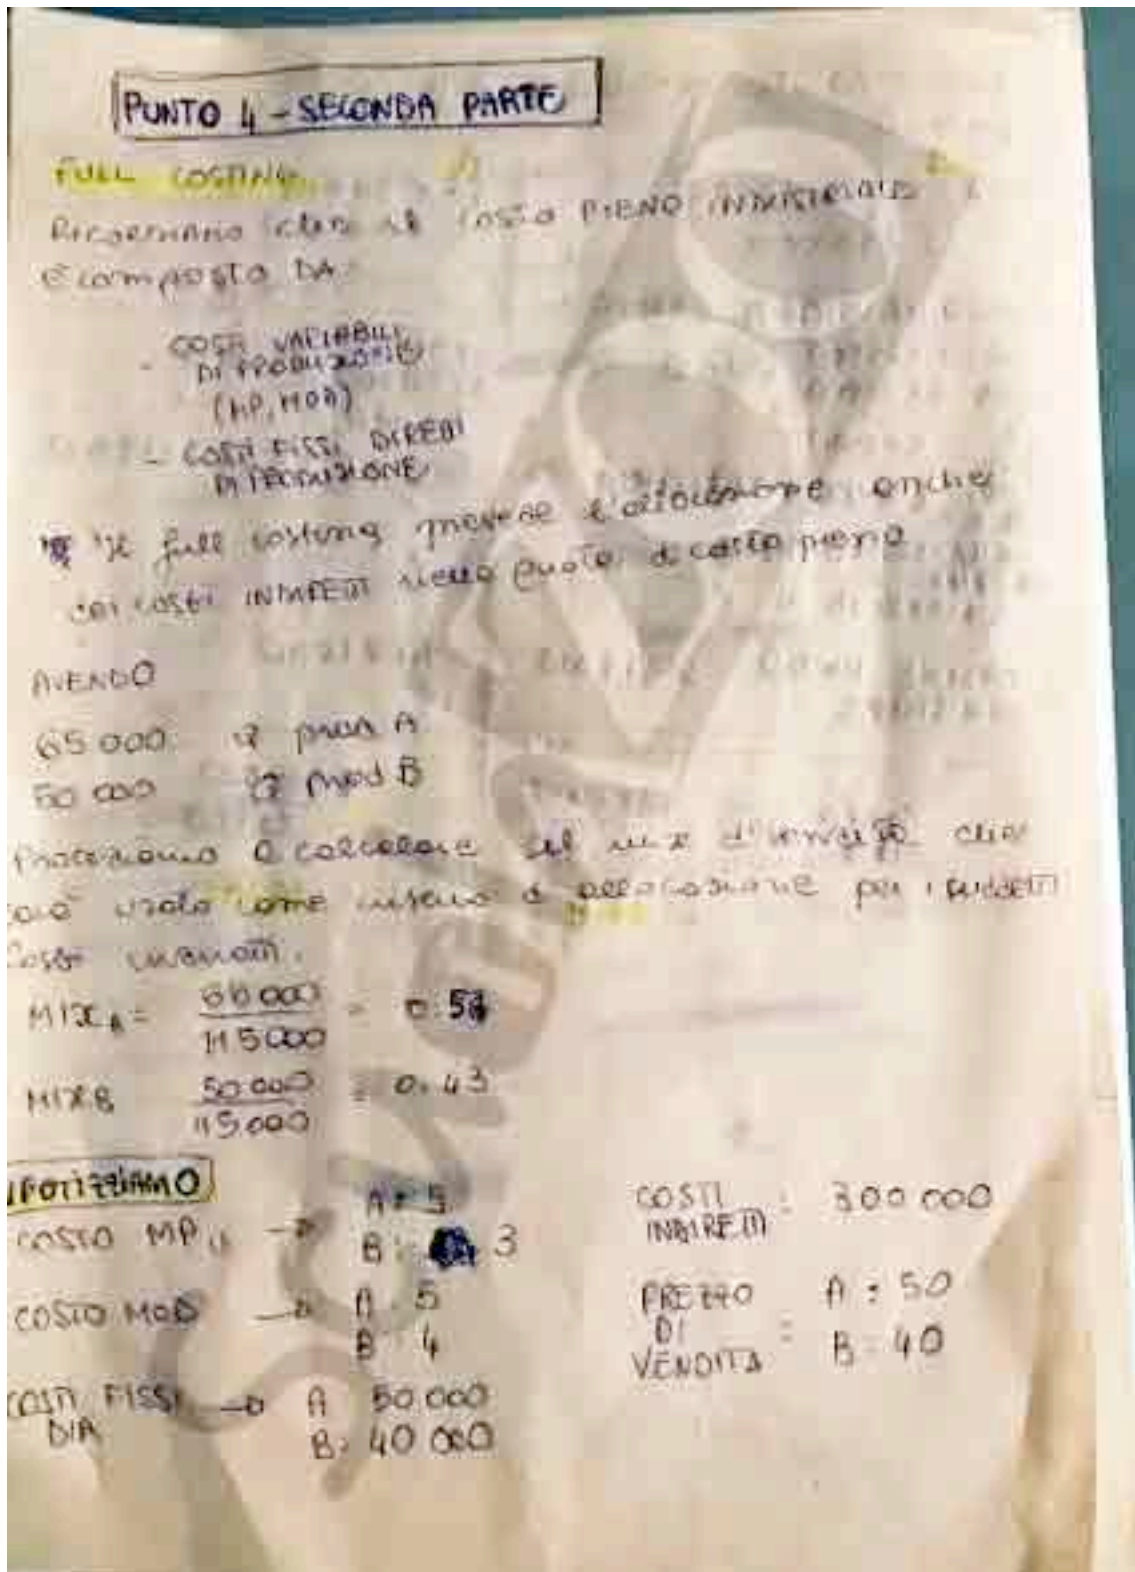 PUNTO 4 - SECONDA PARTE
FULL COSTING
che il costo PIENO INDUSTRIALE
È composto DA:
COSTI VARIABILI
DI PRODUZIONE
(MP, MOD)
- COSTI FISSI DIRETTI
DI PRODUZIONE
Il full costing prevede l'allocazione anche
dei costi INDIRETTI nella quota di costo pieno
AVENDO
65 000 Q prod A
50 000 Q prod B
Procediamo a calcolare il mix che
usato come criterio di allocazione per i suddetti
costi
MIX A = 000 / 115 000 = 0.57
MIX B 50 000 / 115 000 = 0.43
IPOTIZZIAMO
COSTO MP → A: 5
B: 3
COSTO MOD → A 5
B 4
COSTI FISSI → A 50 000
B: 40 000
COSTI INDIRETTI : 300 000
PREZZO DI VENDITA : A : 50
B : 40